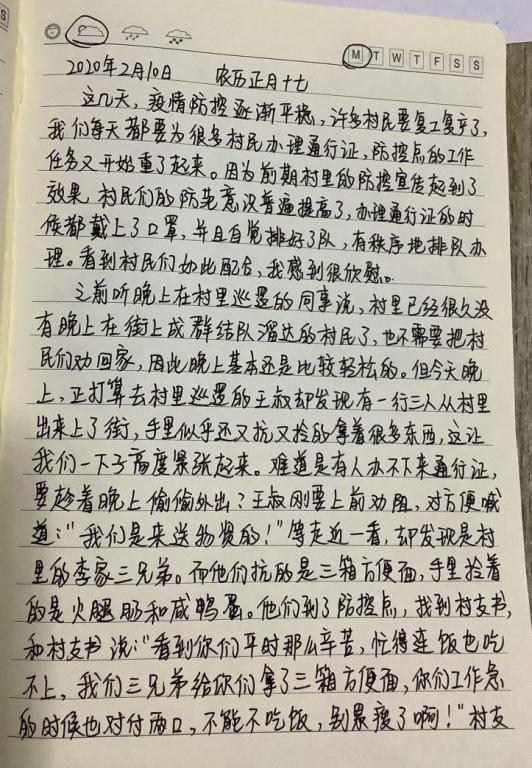 M T W T F S S
2020年2月10日 农历正月十七
这几天,疫情防控逐渐平稳,许多村民要复工复产了,
我们每天都要为很多村民办理通行证,防控点的工作
任务又开始重了起来。因为前期村里的防控宣传起到了
效果,村民们的防范意识普遍提高了,办理通行证的时
候都戴上了口罩,并且自觉排好了队,有秩序地排队办
理。看到村民们如此配合,我感到很欣慰。
之前听晚上在村里巡逻的同事说,村里已经很久没
有晚上在街上成群结队溜达的村民了,也不需要把村
民们劝回家,因此晚上基本还是比较轻松的。但今天晚
上,正打算去村里巡逻的王叔却发现有一行三人从村里
出来上了街,手里似乎还又抗又拎的拿着很多东西,这让
我们一下子高度紧张起来。难道是有人办不下来通行证,
要趁着晚上偷偷外出?王叔刚要上前劝阻,对方便喊
道:“我们是来送物资的!”等走近一看,却发现是村
里的李家三兄弟。而他们抗的是三箱方便面,手里拎着
的是火腿肠和咸鸭蛋。他们到了防控点,找到村支书,
和村支书说:“看到你们平时那么辛苦,忙得连饭也吃
不上,我们三兄弟给你们拿了三箱方便面,你们工作急
的时候也对付两口,不能不吃饭,别累瘦了啊!”村支